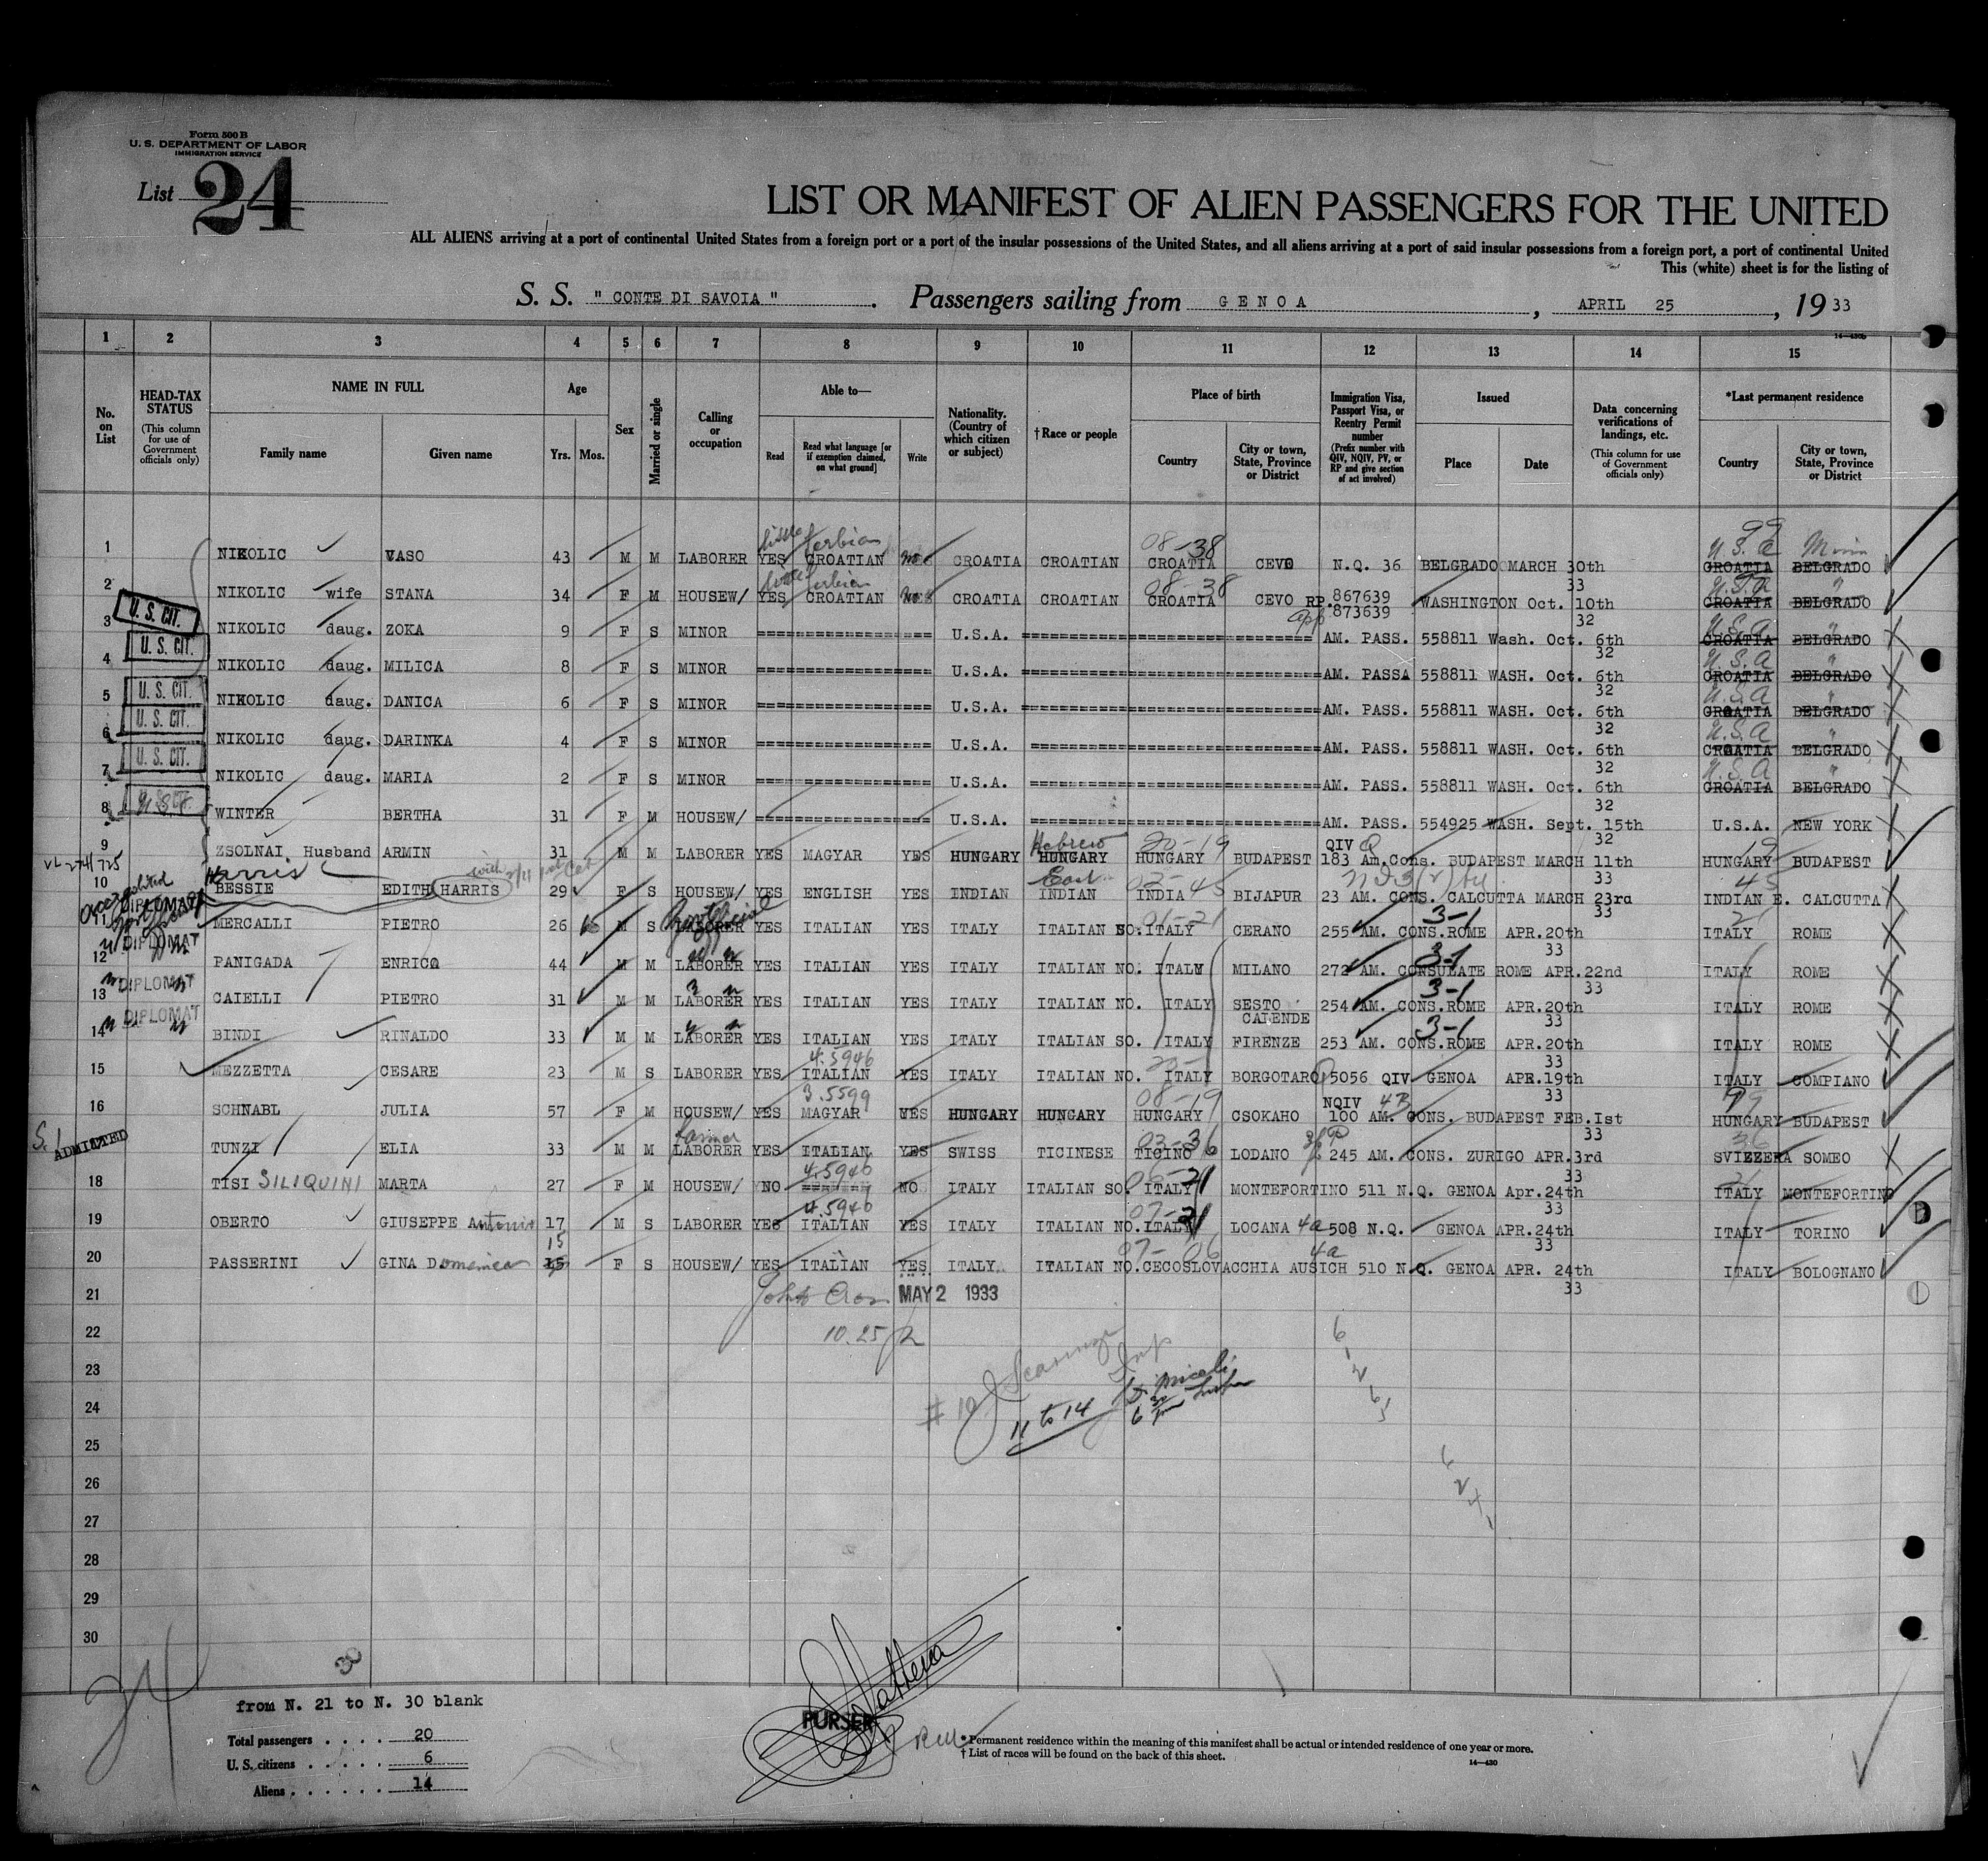 Form 500 B
U. S. DEPARTMENT OF LABOR
IMMIGRATION SERVICE
List 24
LIST OR MANIFEST OF ALIEN PASSENGERS FOR THE UNITED
ALL ALIENS arriving at a port of continental United States from a foreign port or a port of the insular possessions of the United States, and all aliens arriving at a port of said insular possessions from a foreign port, a port of continental United
This (white) sheet is for the listing of
S. S. " CONTE DI SAVOIA " . Passengers sailing from GENOA , APRIL 25 , 19 33
14—430b
1 2 3 4 5 6 7 8 9 10 11 12 13 14 15
No. on List
HEAD-TAX STATUS (This column for use of Government officials only)
NAME IN FULL Family name Given name
Age Yrs. Mos.
Sex
Married or single
Calling or occupation
Able to— Read Read what language [or if exemption claimed, on what ground] Write
Nationality. (Country of which citizen or subject)
†Race or people
Place of birth Country City or town, State, Province or District
Immigration Visa, Passport Visa, or Reentry Permit number (Prefix number with QIV, NQIV, PV, or RP and give section of act involved)
Issued Place Date
Data concerning verifications of landings, etc. (This column for use of Government officials only)
*Last permanent residence Country City or town, State, Province or District
little Serbian 08-38 99 U.S.A Minn
1 NIKOLIC VASO 43 M M LABORER YES CROATIAN no CROATIA CROATIAN CROATIA CEVO N.Q. 36 BELGRADO MARCH 30th 33 CROATIA BELGRADO
little Serbian 08-38 U.S.A "
2 NIKOLIC wife STANA 34 F M HOUSEW/ YES CROATIAN no CROATIA CROATIAN CROATIA CEVO RP. 867639 873639 WASHINGTON Oct. 10th 32 CROATIA BELGRADO
U.S.A "
3 U. S. CIT. NIKOLIC daug. ZOKA 9 F S MINOR ================ U.S.A. ================ AM. PASS. 558811 Wash. Oct. 6th 32 CROATIA BELGRADO
U.S.A "
4 U. S. CIT. NIKOLIC daug. MILICA 8 F S MINOR ================ U.S.A. ================ AM. PASSA 558811 WASH. Oct. 6th 32 CROATIA BELGRADO
U.S.A "
5 U. S. CIT. NIKOLIC daug. DANICA 6 F S MINOR ================ U.S.A. ================ AM. PASS. 558811 WASH. Oct. 6th 32 CROATIA BELGRADO
U.S.A "
6 U. S. CIT. NIKOLIC daug. DARINKA 4 F S MINOR ================ U.S.A. ================ AM. PASS. 558811 WASH. Oct. 6th 32 CROATIA BELGRADO
U.S.A "
7 U. S. CIT. NIKOLIC daug. MARIA 2 F S MINOR ================ U.S.A. ================ AM. PASS. 558811 WASH. Oct. 6th 32 CROATIA BELGRADO
8 WINTER BERTHA 31 F M HOUSEW/ ================ U.S.A. ================ AM. PASS. 554925 WASH. Sept. 15th 32 U.S.A. NEW YORK
Hebrew 20-19 QIV Q 19
9 ZSOLNAI Husband ARMIN 31 M M LABORER YES MAGYAR YES HUNGARY HUNGARY HUNGARY BUDAPEST 183 Am.Cons. BUDAPEST MARCH 11th 33 HUNGARY BUDAPEST
Harris East 02-45 45
10 BESSIE EDITH HARRIS 29 F S HOUSEW/ YES ENGLISH YES INDIAN INDIAN INDIA BIJAPUR 23 AM. CONS. CALCUTTA MARCH 23rd 33 INDIAN E. CALCUTTA
01-21 3-1 21
11 DIPLOMAT MERCALLI PIETRO 26 M S LABORER YES ITALIAN YES ITALY ITALIAN SO. ITALY CERANO 255 AM. CONS.ROME APR.20th 33 ITALY ROME
3-1
12 DIPLOMAT PANIGADA ENRICO 44 M M LABORER YES ITALIAN YES ITALY ITALIAN NO. ITALY MILANO 272 AM. CONSULATE ROME APR.22nd 33 ITALY ROME
3-1
13 DIPLOMAT CAIELLI PIETRO 31 M M LABORER YES ITALIAN YES ITALY ITALIAN NO. ITALY SESTO CALENDE 254 AM. CONS.ROME APR.20th 33 ITALY ROME
3-1
14 DIPLOMAT BINDI RINALDO 33 M M LABORER YES ITALIAN YES ITALY ITALIAN SO. ITALY FIRENZE 253 AM. CONS.ROME APR.20th 33 ITALY ROME
4.5946
15 MEZZETTA CESARE 23 M S LABORER YES ITALIAN YES ITALY ITALIAN NO. ITALY BORGOTARO 5056 QIV GENOA APR.19th 33 ITALY COMPIANO
3.5599 08-19 NQIV
16 SCHNABL JULIA 57 F M HOUSEW/ YES MAGYAR YES HUNGARY HUNGARY HUNGARY CSOKAHO 100 AM. CONS. BUDAPEST FEB.Ist 33 HUNGARY BUDAPEST
S.I. ADMITTED farmer 03-36 36
TUNZI ELIA 33 M M LABORER YES ITALIAN YES SWISS TICINESE TICINO LODANO 245 AM. CONS. ZURIGO APR.3rd 33 SVIZZERA SOMEO
4.5946 21
18 TISI SILIQUINI MARTA 27 F M HOUSEW/ NO ======= NO ITALY ITALIAN SO. ITALY MONTEFORTINO 511 N.Q. GENOA Apr.24th 33 ITALY MONTEFORTINO
4.5946 07-21
19 OBERTO GIUSEPPE Antonio 17 M S LABORER YES ITALIAN YES ITALY ITALIAN NO. ITALY LOCANA 4a 508 N.Q. GENOA APR.24th 33 ITALY TORINO
15 07-06 4a
20 PASSERINI GINA Domenica 15 F S HOUSEW/ YES ITALIAN YES ITALY ITALIAN NO. CECOSLOVACCHIA AUSICH 510 N.Q. GENOA APR. 24th 33 ITALY BOLOGNANO
21 MAY 2 1933
22 10.25
23
24 # 10 11 to 14
25
26
27
28
29
30
24
from N. 21 to N. 30 blank
Total passengers . . . . 20
U. S. citizens . . . . . 6
Aliens . . . . . . 14
PURSER
*Permanent residence within the meaning of this manifest shall be actual or intended residence of one year or more.
† List of races will be found on the back of this sheet.
14—430